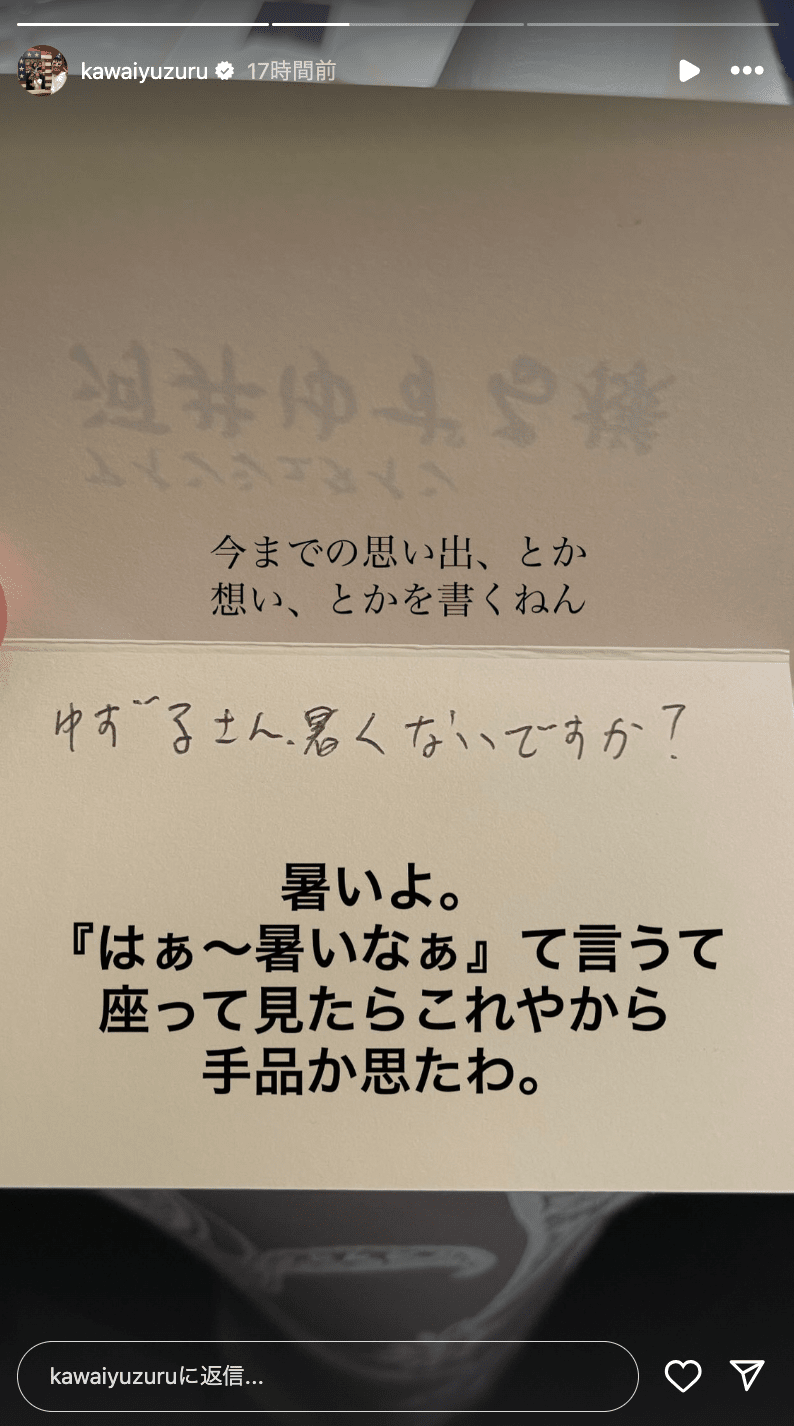 kawaiyuzuru 17時間前
河井ゆずる様
アインシュタイン
今までの思い出、とか
想い、とかを書くねん
ゆずるさん、暑くないですか?
暑いよ。
『はぁ〜暑いなぁ』て言うて
座って見たらこれやから
手品か思たわ。
kawaiyuzuruに返信...